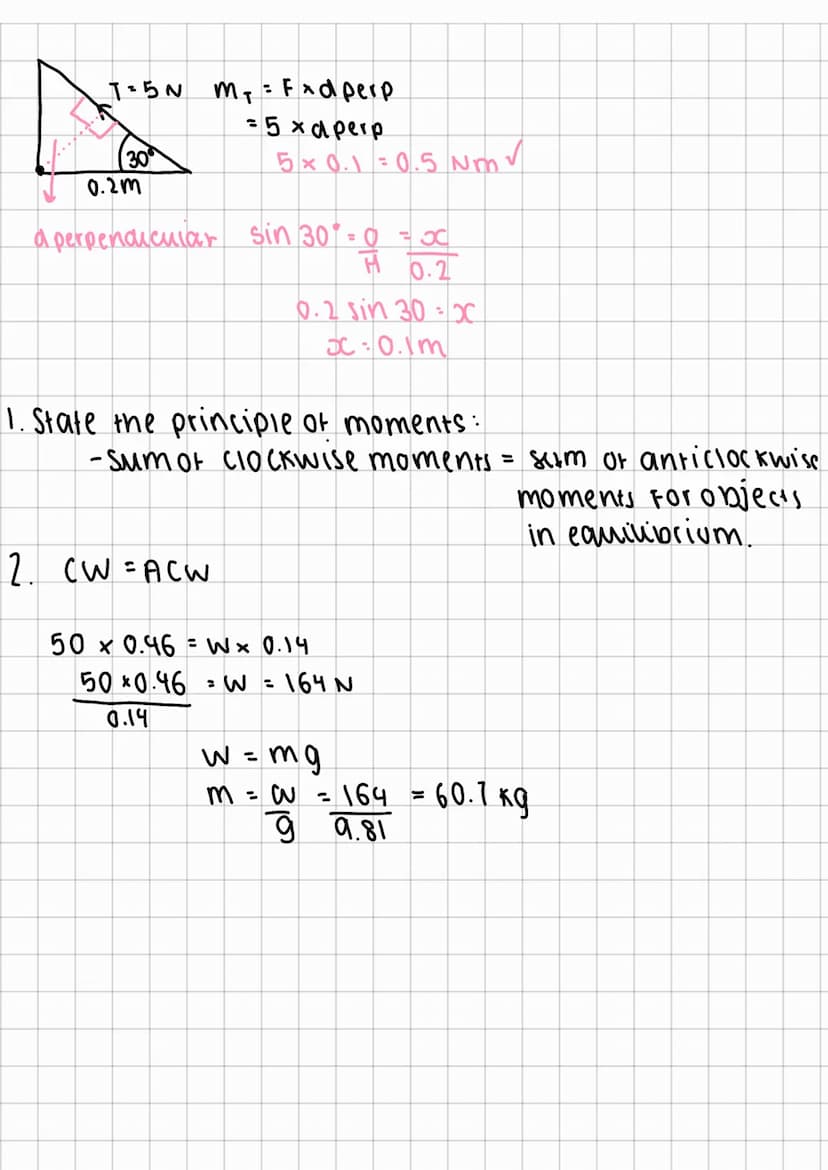 T = 5 N
30°
0.2m
m_T = F × d perp
= 5 × d perp
5 × 0.1 = 0.5 Nm ✓
d perpendicular sin 30° = O/H = x/0.2
0.2 sin 30 = x
x = 0.1m
1. State the principle of moments:
- sum of clockwise moments = sum of anticlockwise
moments for objects
in equilibrium.
2. CW = ACW
50 × 0.46 = W × 0.14
50 × 0.46 / 0.14 = W = 164 N
W = mg
m = W/g = 164/9.81 = 60.7 kg